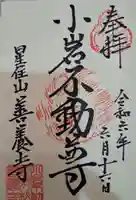 奉拝
令和六年
三月十六日
小岩不動尊
星住山善養寺